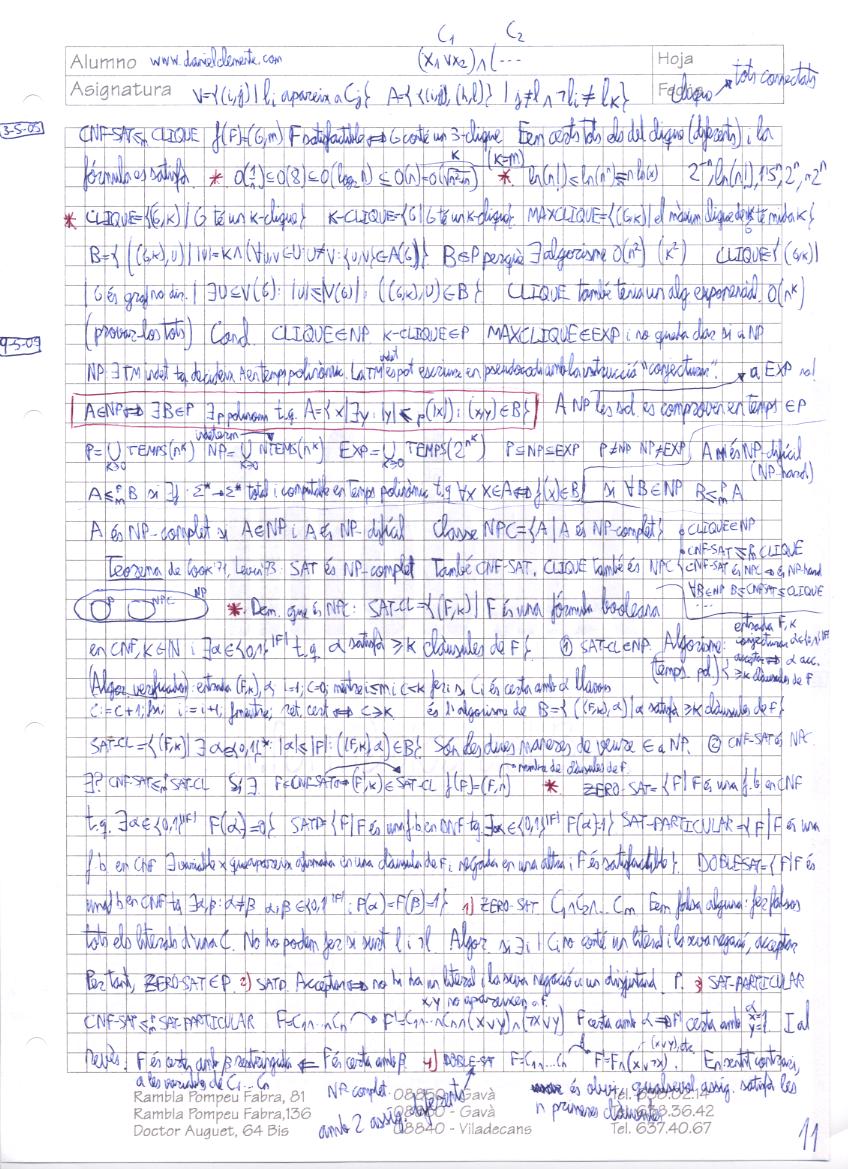 C₁ C₂
Alumno www.danielclemente.com (x₁∨x₂)∧(--- Hoja
Asignatura V={(i,j) | lᵢ apareix a Cⱼ} A={{(i,j),(k,l)} | j≠l ∧ ¬lᵢ≠lₖ} tots connectats
3-5-05 CNF-SAT ≤ₘ CLIQUE f(F)=(G,m) F satisfactible ⟺ G conté un 3-clique Fem certs tots els del clique (diferents) i la
fórmula es satisfà. * ln(n!) ≤ ln(nⁿ) (k=m)
* CLIQUE={(G,K) | G té un K-clique} K-CLIQUE={G | G té un K-clique} MAXCLIQUE={(G,K) | el màxim clique de G té mida K}
B={((G,K),U) | |U|=K ∧ (∀u,v∈U: u≠v: {u,v}∈A(G))} B∈P perquè ∃ algorisme O(n²) (K²) CLIQUE={(G,K) |
| G és graf no dir. | ∃U⊆V(G): |U|≤|V(G)|: ((G,K),U)∈B} CLIQUE també tenia un alg exponencial O(nᵏ)
9-5-05 (provar-los tots) Cond. CLIQUE∈NP K-CLIQUE∈P MAXCLIQUE∈EXP i no queda clar si a NP
NP ∃TM indet tq decideix A en temps polinòmic. La TM indet es pot escriure en pseudocodi amb la instrucció "conjecturar". a EXP no!
A∈NP ⟺ ∃B∈P ∃p polinomi t.q. A={x | ∃y: |y| ≤ p(|x|): (x,y)∈B} A NP les sol. es comproven en temps ∈P
P=⋃ TEMPS(nᵏ) indeterm NP=⋃ NTEMPS(nᵏ) EXP=⋃ TEMPS(2^nᵏ) P⊆NP⊆EXP P≠NP NP≠EXP A és NP-difícil
K≥0 K≥0 K≥0 (NP-hard)
A≤ₘᵖB si ∃f: Σ*→Σ* total i computable en temps polinòmic t.q. ∀x x∈A⟺f(x)∈B si ∀B∈NP B≤ₘᵖA
A és NP-complet si A∈NP i A és NP-difícil Classe NPC={A | A és NP-complet} • CLIQUE∈NP
Teorema de Cook'71, Levin'73: SAT és NP-complet També CNF-SAT. CLIQUE també és NPC • CNF-SAT ≤ₘᵖ CLIQUE
• CNF-SAT és NPC ⇒ és NP-hard
∀B∈NP B≤CNFSAT≤CLIQUE
...
P NPC NP * Dem. que és NPC: SAT-CL={(F,K) | F és una fórmula booleana
en CNF, K∈N i ∃α∈{0,1}^|F| t.q. α satisfà ≥K clàusules de F} ① SAT-CL∈NP. Algorisme: entrada F,K
(temps pol) conjecturar α∈{0,1}^|F|
acceptar ⟺ α sat. ≥K clàusules de F
(Algor. verificador): entrada (F,K),α i=1; c=0; mentre i≤m i c<K fer; si Cᵢ és certa amb α llavors
c:=c+1; fsi; i:=i+1; fmentre; ret. cert ⟺ c≥K és l'algorisme de B={((F,K),α) | α satisfà ≥K clàusules de F}
SAT-CL={(F,K) | ∃α∈{0,1}*: |α|≤|F|: ((F,K),α)∈B} Són les dues maneres de veure ∈ a NP. ② CNF-SAT és NPC.
∃? CNF-SAT≤ₘᵖSAT-CL Sí ∃. F∈CNF-SAT⟺(F',K)∈SAT-CL f(F)=(F,n) nombre de clàusules de F. * ZERO-SAT={F | F és una f.b. en CNF
t.q. ∃α∈{0,1}^|F| F(α)=0} SATD={F | F és una f b en DNF tq ∃α∈{0,1}^|F| F(α)=1} SAT-PARTICULAR={F | F és una
f b en CNF ∃ variable x que apareix afirmada en una clàusula de F i negada en una altra i F és satisfactible}. DOBLESAT={F | F és
una f b en CNF tq ∃α,β: α≠β α,β∈{0,1}^|F|: F(α)=F(β)=1} 1) ZERO-SAT C₁∧C₂∧... Cₘ Fem falsa alguna: fer falsos
tots els literals d'una C. No ho podem fer si surt l i ¬l. Algor. si ∃i | Cᵢ no conté un literal i la seva negació, acceptar
Per tant, ZERO-SAT∈P. 2) SATD. Acceptar ⟺ no hi ha un literal i la seva negació a un disjuntand. P. 3) SAT-PARTICULAR
x,y no apareixen a F.
CNF-SAT≤ₘᵖSAT-PARTICULAR F=C₁∧...∧Cₙ → F'=C₁∧...∧Cₙ∧(x∨y)∧(¬x∨y) F certa amb α ⟹ F' certa amb α x=1 y=1. I al
revés: F és certa amb β restringida ⟸ F' és certa amb β. 4) DOBLE-SAT F=C₁∧...Cₙ F'=F∧(x∨¬x) (x∨y), etc. En sentit contrari,
a les variables de C₁...Cₙ NP-complet. és obvi: qualsevol assig. satisfà les
amb 2 assig. diferents n primeres clàusules
Rambla Pompeu Fabra, 81 08850 - Gavà Tel. 638.02.14
Rambla Pompeu Fabra,136 - Gavà .36.42
Doctor Auguet, 64 Bis 08840 - Viladecans Tel. 637.40.67
11